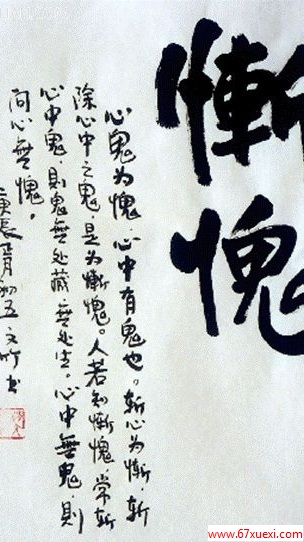 慚愧
心鬼为愧，心中有鬼也。斬心为慚，斬
除心中之鬼，是为慚愧。人若知慚愧，常斬
心中鬼，則鬼無处藏，無处生。心中無鬼，則
问心無愧。
庚辰 初五 文 书
www.67xuexi.com